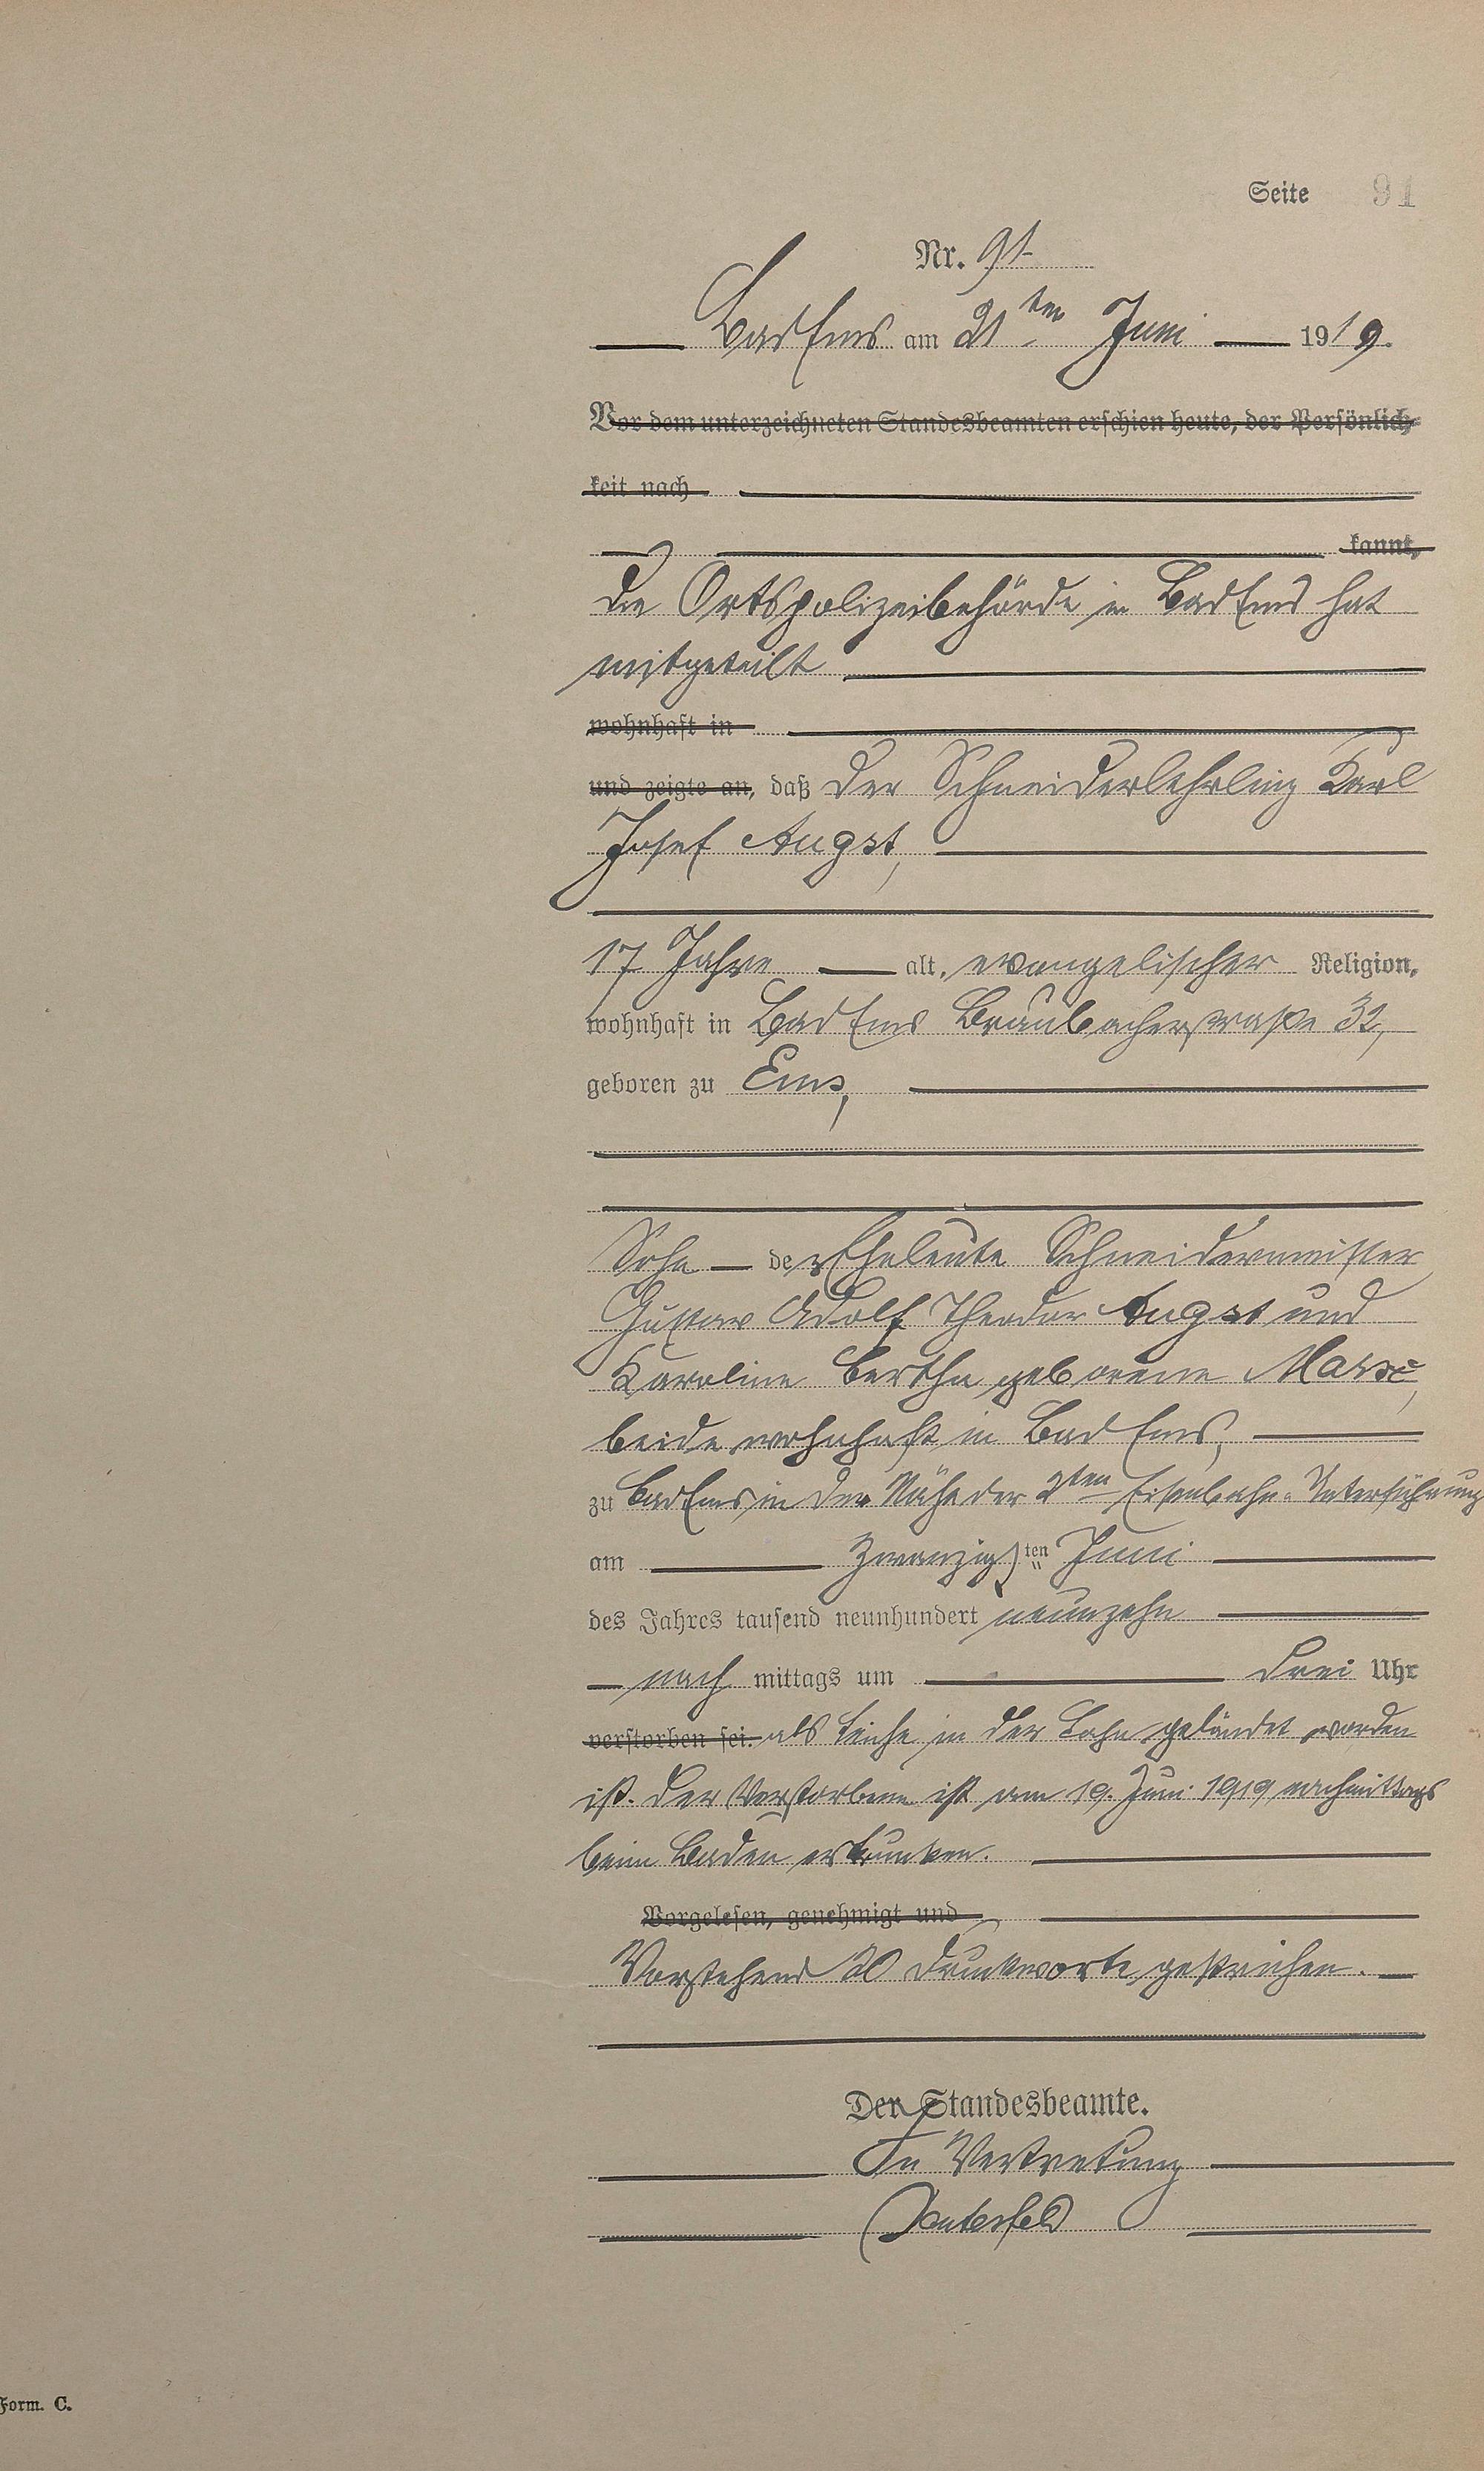 Seite 91
Nr. 91
Bad Ems am 21ten Juni 1919.
Vor dem unterzeichneten Standesbeamten erschien heute, der Persönlich-
keit nach
kannt,
Die Ortspolizeibehörde in Bad Ems hat
mitgeteilt
wohnhaft in
und zeigte an, daß der Schneiderlehrling Karl
Josef Augst,
17 Jahre alt, evangelischer Religion,
wohnhaft in Bad Ems Braubacherstraße 32,
geboren zu Ems,
Sohn der Eheleute Schneidermeister
Gustav Adolf Theodor Augst und
Karoline Bertha geborene
beide wohnhaft in Bad Ems,
zu Bad Ems in der Nähe der 2ten Eisenbahn-Unterführung
am zwanzigsten Juni
des Jahres tausend neunhundert neunzehn
nach mittags um drei Uhr
verstorben sei. als Leiche in der Lahn geländet worden
ist. Der Verstorbene ist am 19. Juni 1919 nachmittags
beim Baden ertrunken.
Vorgelesen, genehmigt und
Vorstehend 20 Druckworte gestrichen.
Der Standesbeamte.
In Vertretung
Form. C.